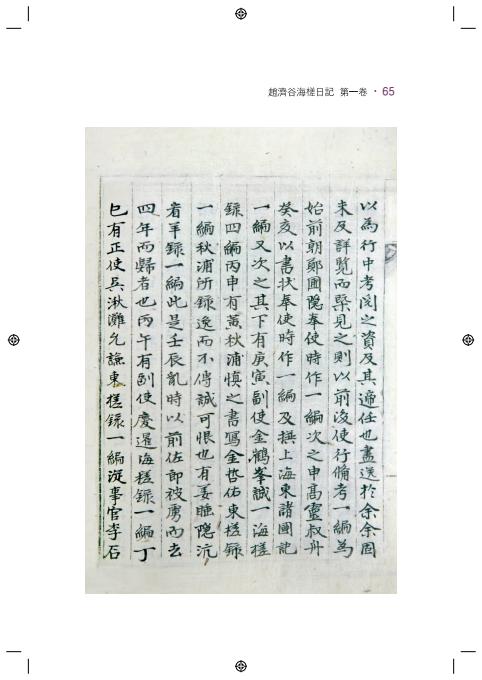 趙濟谷海槎日記 第一卷 · 65
以為行中考閱之資及其遞任也盡送於余余固
未及詳覽而槩見之則以前後使行備考一編為
始前朝鄭圃隱奉使時作一編次之申高靈叔舟
癸亥以書狀奉使時作一編及撰上海東諸國記
一編又次之其下有庚寅副使金鶴峯誠一海槎
錄四編丙申有黃秋浦愼之書寫金哲佑東槎錄
一編秋浦所錄逸而不傳誠可恨也有姜睡隱沆
看羊錄一編此是壬辰亂時以前佐郎被虜而去
四年而歸者也丙午有副使慶暹海槎錄一編丁
巳有正使吳湫灘允謙東槎錄一編從事官李石